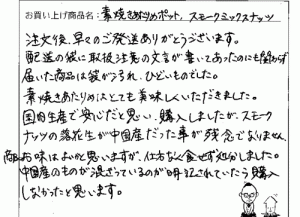 お買い上げ商品名：素焼きあたりめポット、スモークミックスナッツ
注文後、早々のご発送ありがとうございます。
配送の袋に取扱注意の文言が書いてあったのにも関わらず
届いた商品は袋がつぶれ、ひどいものでした。
素焼きあたりめはとても美味しくいただきました。
国内生産で安心だと思い、購入しましたが、スモーク
ナッツの落花生が中国産だった事が残念でなりません。
商品お味はよいかと思いますが、仕方なく食せず処分しました。
中国産のものが混ざっているのが明記されていたら購入
しなかったと思います。